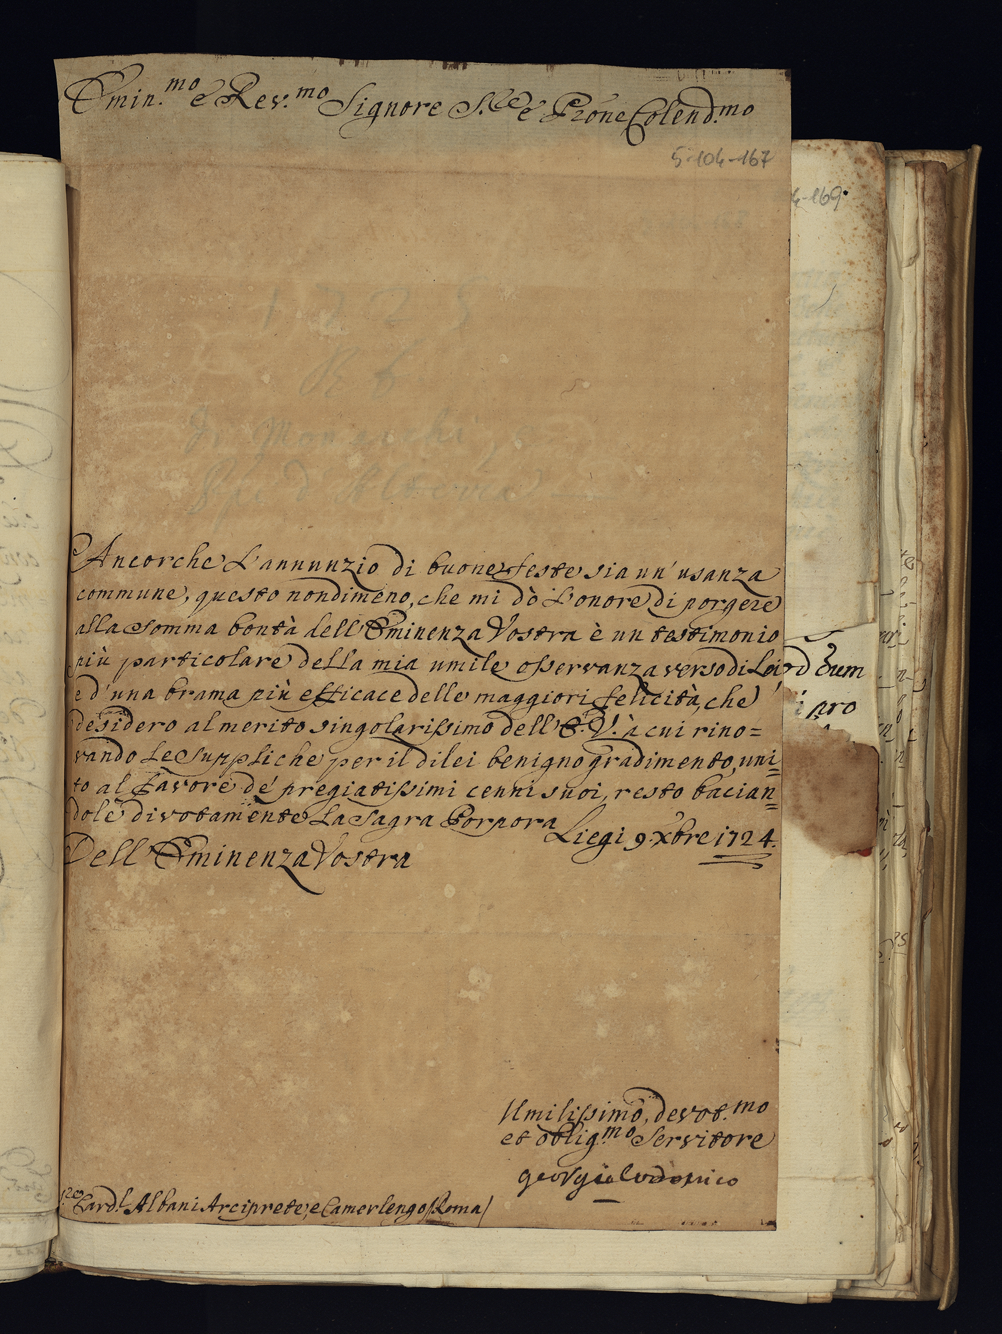 Emin.mo e Rev.mo Signore S.re e Prone Colend.mo
5-104-167
4-169.
Ancorche L'annunzio di buone feste sia un' usanza
commune, questo nondimeno, che mi dò L'onore di porgere
alla somma bontà dell'Eminenza Vostra è un testimonio
più particolare della mia umile osservanza verso di Lei
e d'una brama più efficace delle maggiori felicità, che
desidero al merito singolarissimo dell'E.V. à cui rino=
vando Le Suppliche per il di lei benigno gradimento, uni=
to al favore de' pregiatissimi cenni suoi, resto bacian=
dole divotamente La Sagra Porpora
Liegi 9. Xbre 1724.
Dell'Eminenza Vostra
Umilissimo, devot.mo
et oblig.mo Servitore
Georgio Lodovico
Card.l Albani Arciprete, e Camerlengo /Roma/